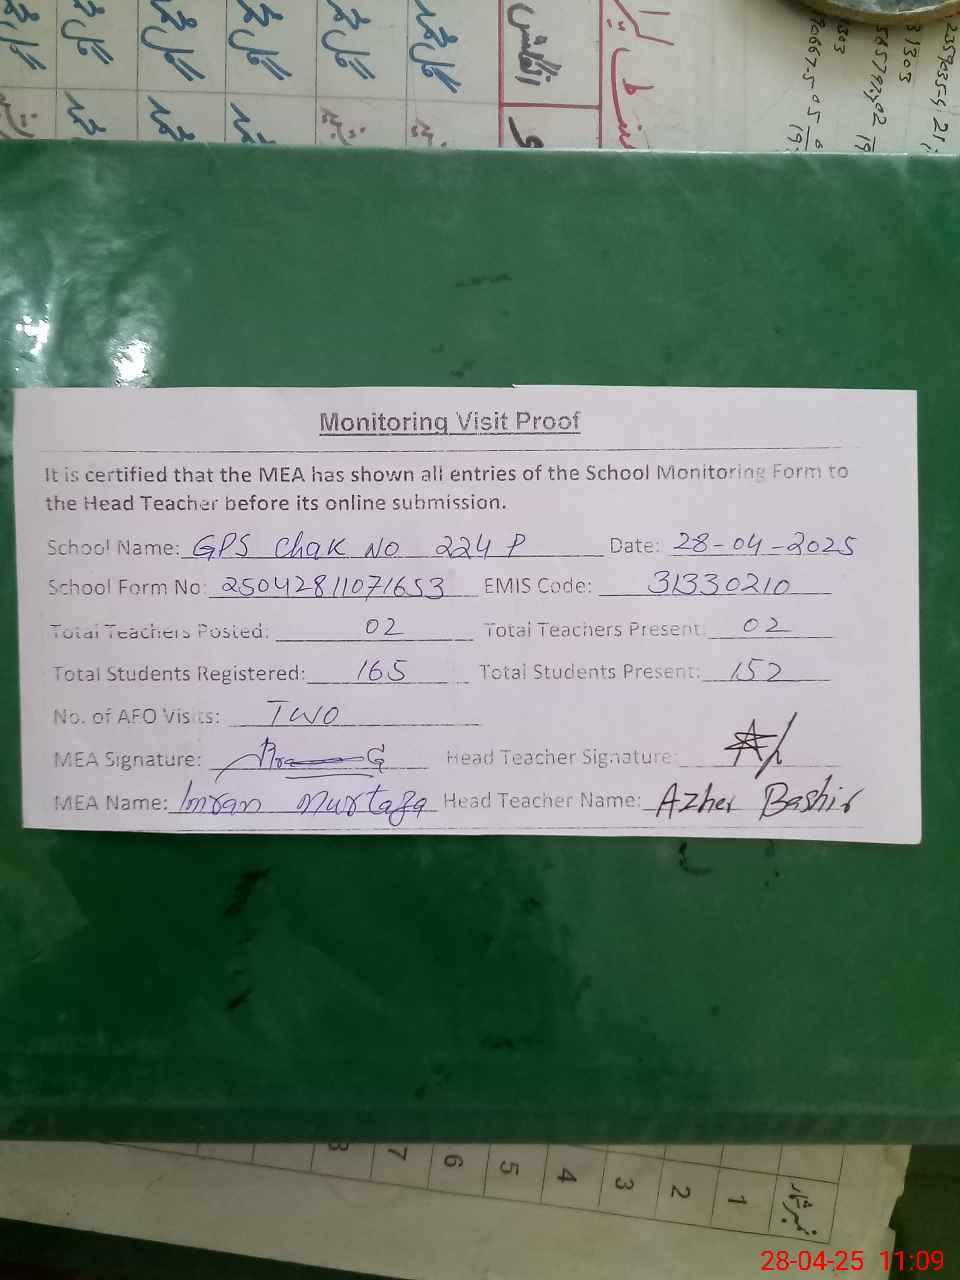 Monitoring Visit Proof
It is certified that the MEA has shown all entries of the School Monitoring Form to
the Head Teacher before its online submission.
School Name: GPS Chak No 224 P Date: 28-04-2025
School Form No: 25042811071653 EMIS Code: 31330210
Total Teachers Posted: 02 Total Teachers Present: 02
Total Students Registered: 165 Total Students Present: 152
No. of AEO Visits: TWO
MEA Signature: Head Teacher Signature:
MEA Name: Imran Murtaza Head Teacher Name: Azher Bashir
8 7 6 5 4 3 2 1 نمبر شمار
28-04-25 11:09